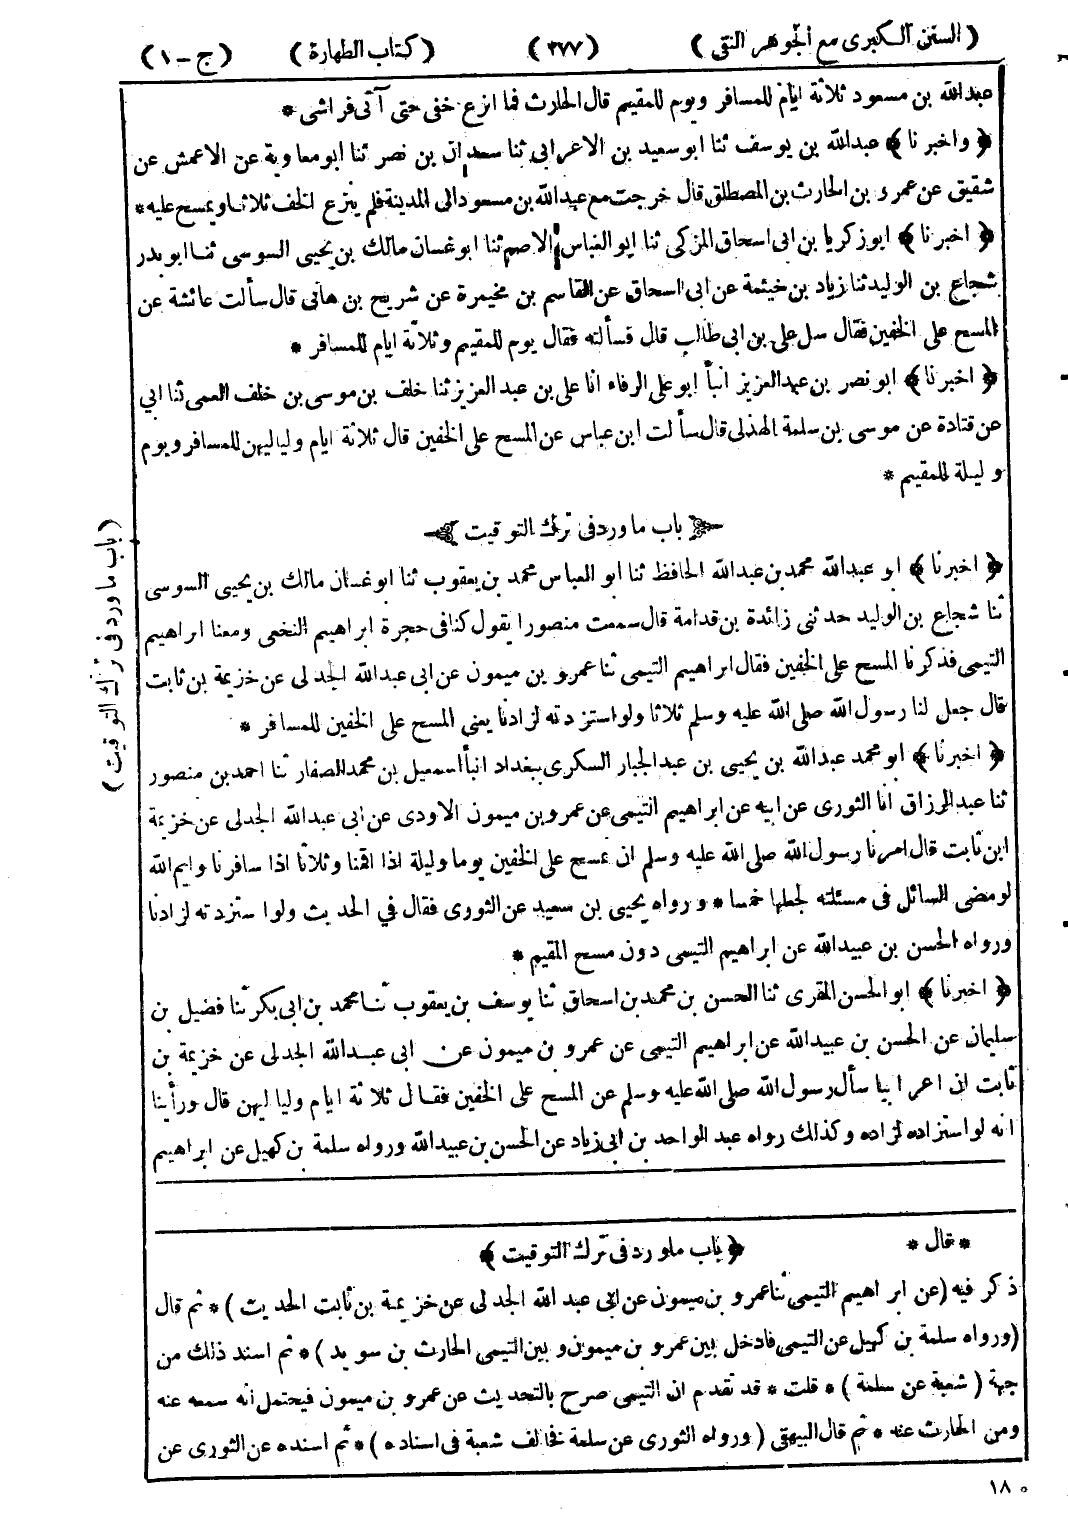 ( السنن الكبرى مع الجوهر النقى ) ( ٢٧٧ ) ( كتاب الطهارة ) ( ج - ١ )
عبدالله بن مسعود ثلاثة ايام للمسافر ويوم للمقيم قال الحارث فما انزع خفى حتى آتى فراشى *
﴿ واخبرنا ﴾ عبدالله بن يوسف ثنا ابوسعيد بن الاعرابي ثنا سعدان بن نصر ثنا ابومعاوية عن الاعمش عن
شقيق عن عمرو بن الحارث بن المصطلق قال خرجت مع عبدالله بن مسعود الى المدينة فلم ينزع الخف ثلاثا ويمسح عليه *
﴿ اخبرنا ﴾ ابوزكريا بن ابى اسحاق المزكى ثنا ابو العباس الاصم ثنا ابوغسان مالك بن يحيى السوسى ثنا ابوبدر
شجاع بن الوليد ثنا زياد بن خيثمة عن ابى اسحاق عن القاسم بن مخيمرة عن شريح بن هانى قال سألت عائشة عن
المسح على الخفين فقال سل على بن ابى طالب قال فسألته فقال يوم للمقيم وثلاثة ايام للمسافر *
﴿ اخبرنا ﴾ ابونصر بن عبدالعزيز انبأ ابوعلى الرفاء انا على بن عبد العزيز ثنا خلف بن موسى بن خلف العمى ثنا ابي
عن قتادة عن موسى بن سلمة الهذلى قال سألت ابن عباس عن المسح على الخفين قال ثلاثة ايام ولياليهن للمسافر ويوم
وليلة للمقيم *
باب ماورد فى ترك التوقيت
﴿ اخبرنا ﴾ ابو عبدالله محمد بن عبدالله الحافظ ثنا ابو العباس محمد بن يعقوب ثنا ابوغسان مالك بن يحيى السوسى
ثنا شجاع بن الوليد حدثنى زائدة بن قدامة قال سمعت منصورا يقول كنا فى حجرة ابراهيم النخعى ومعنا ابراهيم
التيمى فذكرنا المسح على الخفين فقال ابراهيم التيمى ثنا عمرو بن ميمون عن ابى عبدالله الجدلى عن خزيمة بن ثابت
قال جعل لنا رسول الله صلى الله عليه وسلم ثلاثا ولو استزدته لزادنا يعنى المسح على الخفين للمسافر *
﴿ اخبرنا ﴾ ابو محمد عبدالله بن يحيى بن عبدالجبار السكرى ببغداد انبأ اسمعيل بن محمد الصفار ثنا احمد بن منصور
ثنا عبدالرزاق انا الثورى عن ابيه عن ابراهيم التيمى عن عمرو بن ميمون الاودى عن ابى عبدالله الجدلى عن خزيمة
ابن ثابت قال امرنا رسول الله صلى الله عليه وسلم ان نمسح على الخفين يوما وليلة اذا اقمنا وثلاثا اذا سافرنا وايم الله
لو مضى السائل فى مسئلته لجعلها خمسا * ورواه يحيى بن سعيد عن الثورى فقال في الحديث ولو استزدته لزادنا
ورواه الحسن بن عبيدالله عن ابراهيم التيمى دون مسح المقيم *
﴿ اخبرنا ﴾ ابوالحسن المقرى ثنا الحسن بن محمد بن اسحاق ثنا يوسف بن يعقوب ثنا محمد بن ابى بكر ثنا فضيل بن
سليمان عن الحسن بن عبيدالله عن ابراهيم التيمى عن عمرو بن ميمون عن ابى عبدالله الجدلى عن خزيمة بن
ثابت ان اعرابيا سأل رسول الله صلى الله عليه وسلم عن المسح على الخفين فقال ثلاثة ايام ولياليهن قال ورأينا
انه لو استزاده لزاده وكذلك رواه عبد الواحد بن ابى زياد عن الحسن بن عبيدالله ورواه سلمة بن كهيل عن ابراهيم
( باب ماورد فى ترك التوقيت )
* قال * ﴿ باب ماورد فى ترك التوقيت ﴾
ذكر فيه ( عن ابراهيم التيمى ثنا عمرو بن ميمون عن ابى عبد الله الجدلى عن خزيمة بن ثابت الحديث ) * ثم قال
( ورواه سلمة بن كهيل عن التيمى فادخل بين عمرو بن ميمون وبين التيمى الحارث بن سويد ) * ثم اسند ذلك من
جهة ( شعبة عن سلمة ) * قلت * قد تقدم ان التيمى صرح بالتحديث عن عمرو بن ميمون فيحتمل انه سمعه عنه
ومن الحارث عنه * ثم قال البيهقى ( ورواه الثورى عن سلمة فخالف شعبة فى اسناده ) * ثم اسنده عن الثورى عن
١٨٠